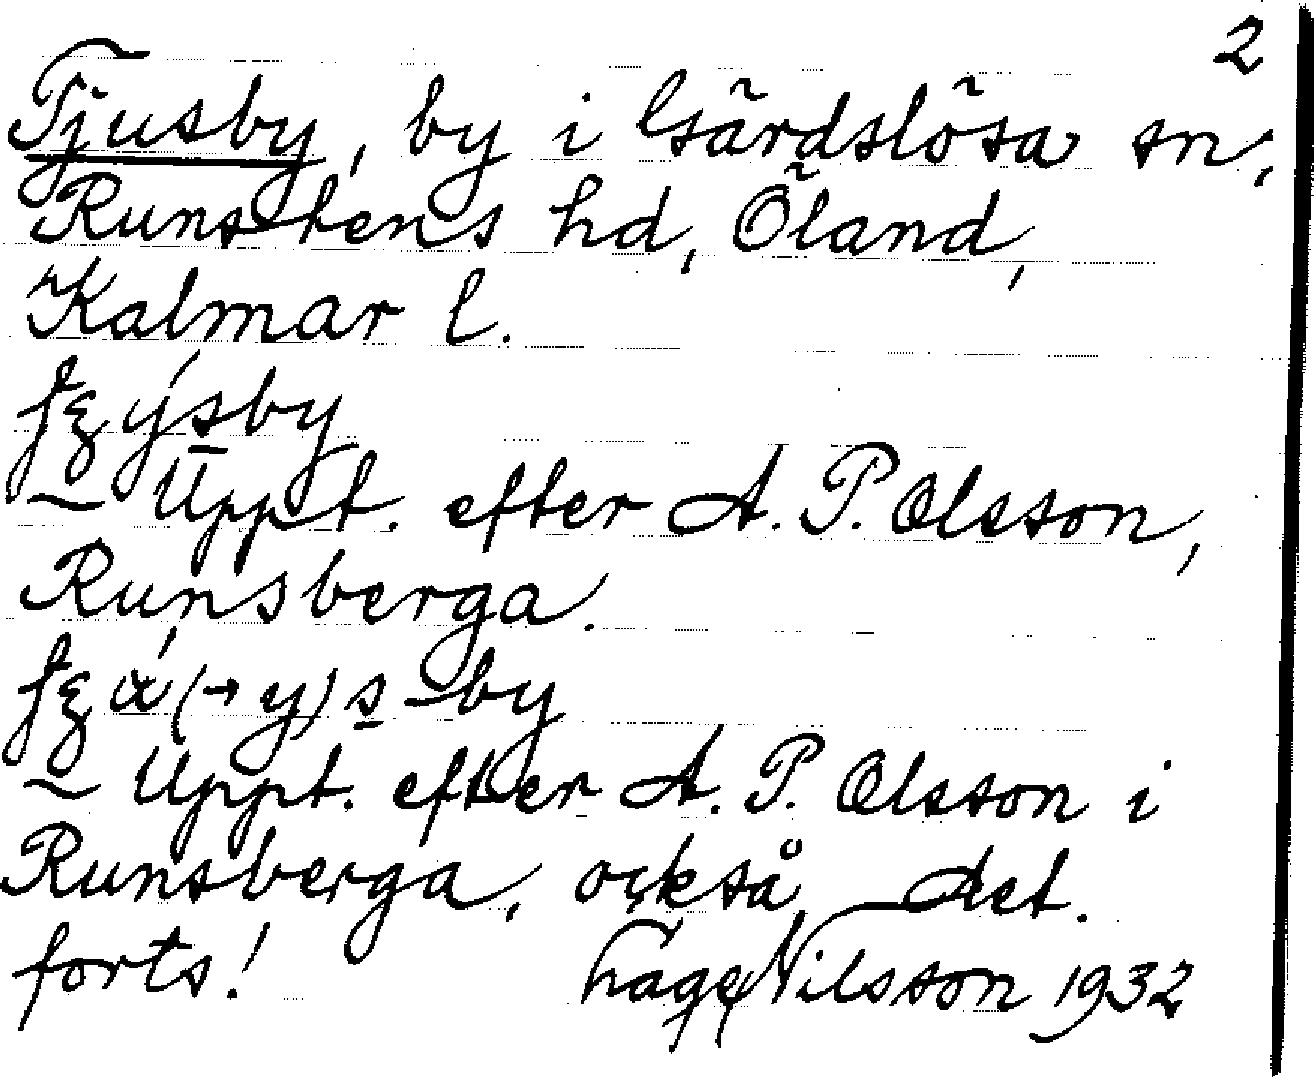 2
Tjusby, by i Gärdslösa sn,
Runstens hd, Öland,
Kalmar l.
Uppt. efter A. P. Olsson,
Runsberga.
Uppt. efter A. P. Olsson i
Runsberga, också det.
forts! Håge Nilsson 1932